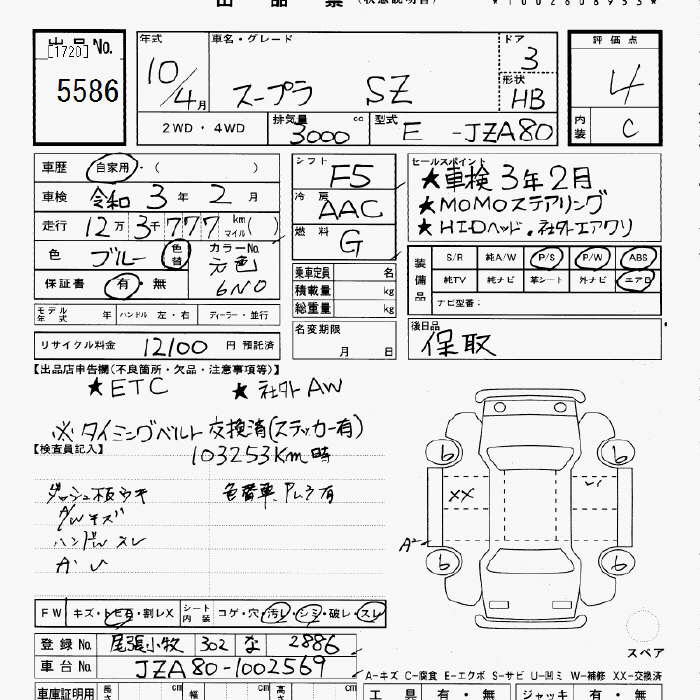 出品票 (状態説明書)
*1002608953*
出品No.
[1720]
5586
年式
10/4月
車名・グレード
スープラ SZ
ドア
3
形状
HB
2WD・4WD
排気量
3000 cc
型式
E -JZA80
評価点
4
内装
C
車歴 自家用・( )
車検 令和 3年 2月
走行 12万3千777 km マイル( )
色 ブルー 色替 カラーNo. 元色 6N0
保証書 有・無
シフト
F5
冷房
AAC
燃料
G
乗車定員 名
積載量 kg
総重量 kg
セールスポイント
★車検3年2月
★MOMOステアリング
★HIDヘッド・社外エアクリ
装備品
S/R 純A/W P/S P/W ABS
純TV 純ナビ 革シート 外ナビ エアロ
ナビ型番:
モデル年式 年 ハンドル 左・右 ディーラー・並行
リサイクル料金 12100 円 預託済
名変期限
月 日
後日品
保取
【出品店申告欄(不良箇所・欠品・注意事項等)】
★ETC ★社外AW
※タイミングベルト交換済(ステッカー有)
103253Km時
【検査員記入】
ダッシュ板ウキ 色替車、クレーム有
A/Wキズ
ハンドルスレ
A・U
FW キズ・トビ石・割レX シート内装 コゲ・穴・汚レ・シミ・破レ・スレ
登録No. 尾張小牧 302 な 2886
車台No. JZA80-1002569
6 6
XX
A2
6 6
スペア
A-キズ C-腐食 E-エクボ S-サビ U-凹ミ W-補修 XX-交換済
車庫証明用 長さ cm 幅 cm 高さ cm
工具 有・無 ジャッキ 有・無